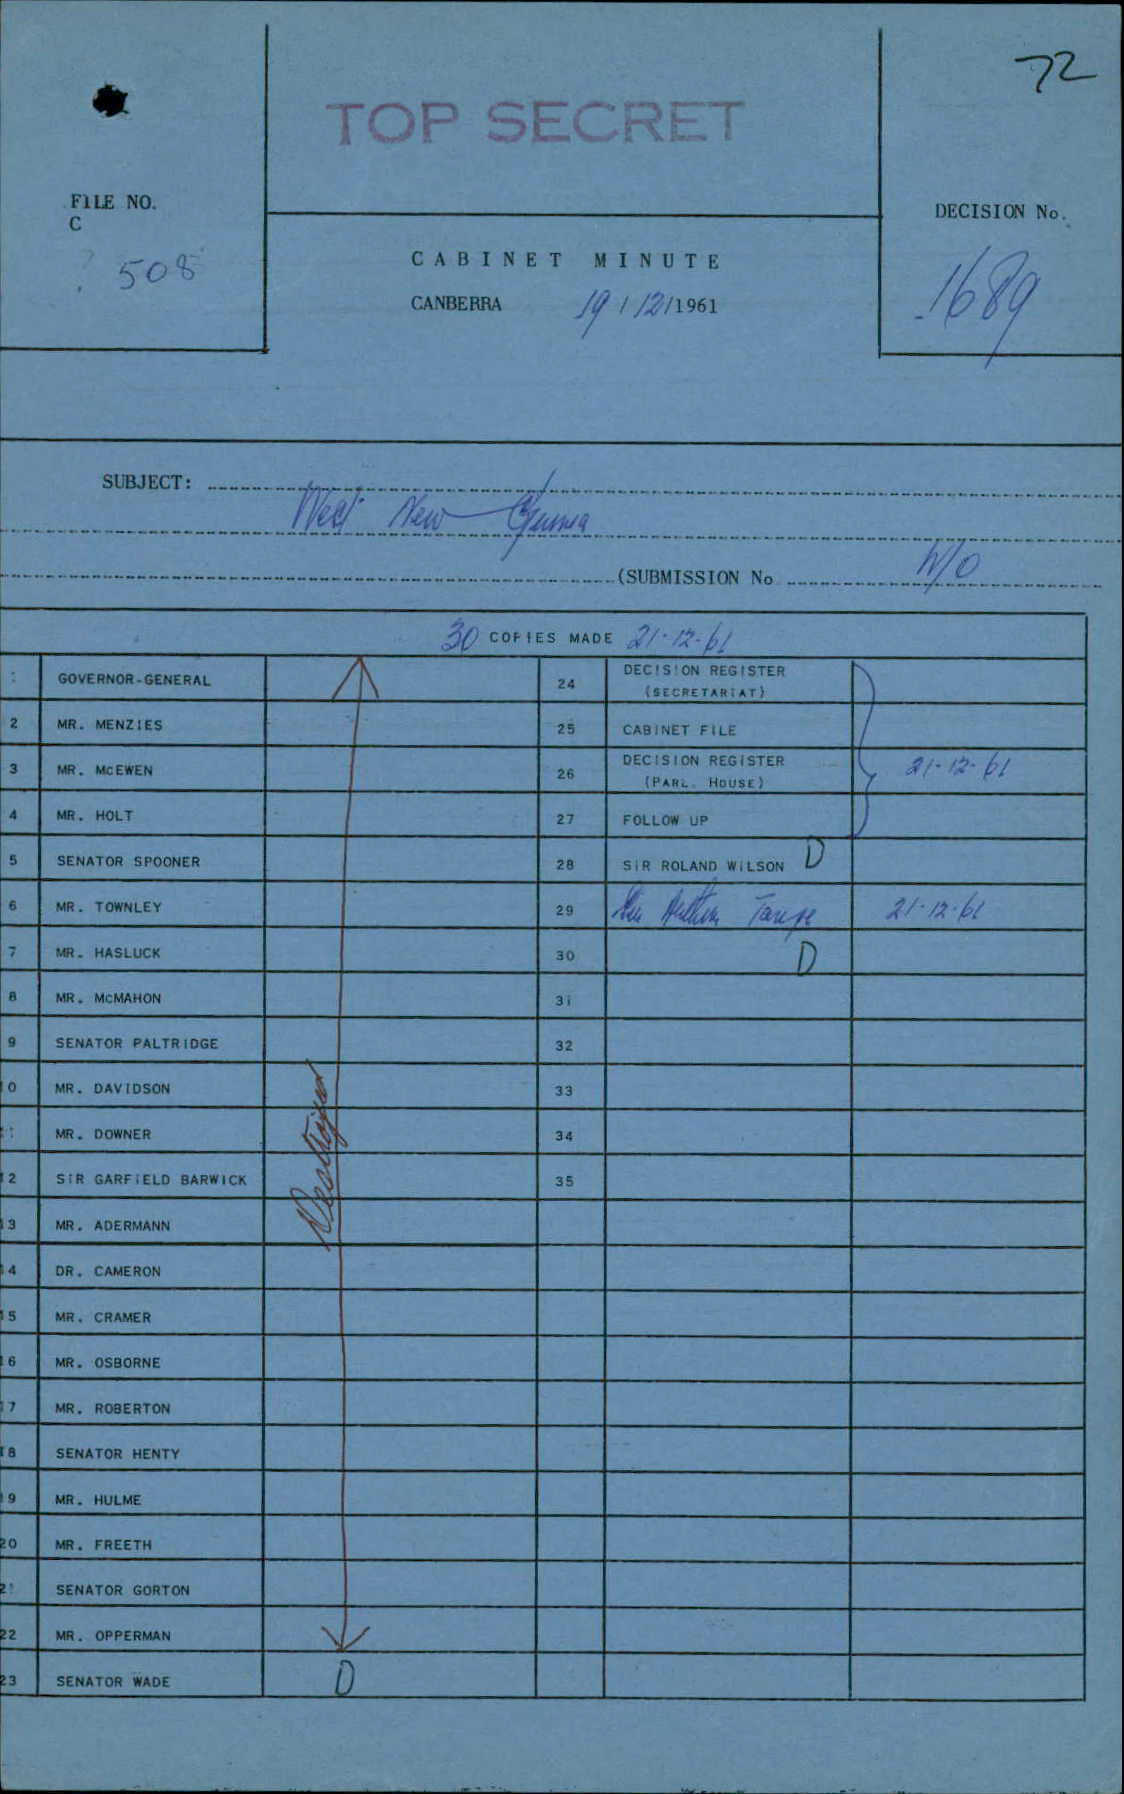 72
TOP SECRET
FILE NO.
C
? 508
DECISION No.
1689
CABINET MINUTE
CANBERRA 19/12/1961
SUBJECT:
West New Guinea
(SUBMISSION No W/O
30 COPIES MADE 21-12-61
GOVERNOR-GENERAL
2 MR. MENZIES
3 MR. McEWEN
4 MR. HOLT
5 SENATOR SPOONER
6 MR. TOWNLEY
7 MR. HASLUCK
8 MR. McMAHON
9 SENATOR PALTRIDGE
0 MR. DAVIDSON
MR. DOWNER
12 SIR GARFIELD BARWICK
13 MR. ADERMANN
14 DR. CAMERON
15 MR. CRAMER
16 MR. OSBORNE
17 MR. ROBERTON
18 SENATOR HENTY
19 MR. HULME
20 MR. FREETH
21 SENATOR GORTON
22 MR. OPPERMAN
23 SENATOR WADE
Destroyed
D
24 DECISION REGISTER
(SECRETARIAT)
25 CABINET FILE
26 DECISION REGISTER
(PARL. HOUSE)
21-12-61
27 FOLLOW UP
28 SIR ROLAND WILSON D
29 Sir Arthur Tange 21-12-61
30 D
31
32
33
34
35